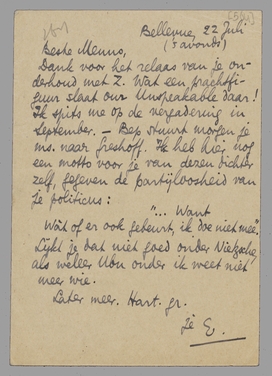 Bellevue, 22 Juli
('s avonds)
Beste Menno,
Dank voor het relaas van je on-
derhoud met Z. Wat een prachtfi-
guur slaat our Unspeakable daar!
Ik spits me op de vergadering in
September. — Bep stuurt morgen je
ms. naar Greshoff. Ik heb hier nog
een motto voor je van dezen dichter
zelf, gegeven de partijloosheid van
je politicus:
"... Want
Wàt of er ook gebeurt, ik doe niet mee".
Lijkt je dat niet goed onder Nietzsche,
als weleer Ubu onder ik weet niet
meer wie.
Later meer. Hart. gr.
je E.